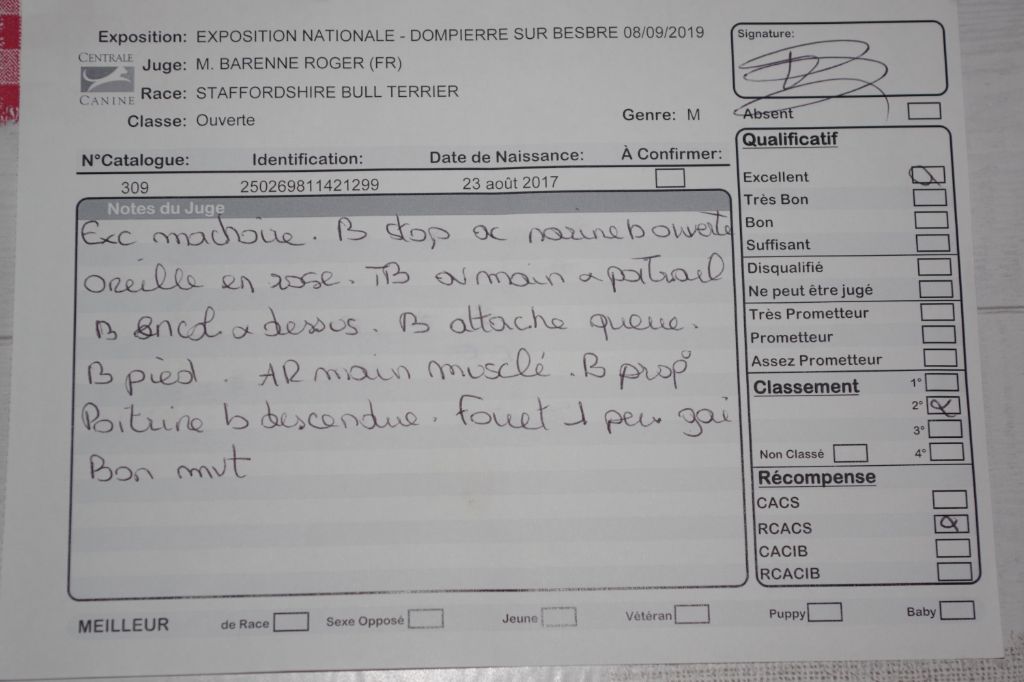 Exposition: EXPOSITION NATIONALE - DOMPIERRE SUR BESBRE 08/09/2019
CENTRALE CANINE
Juge: M. BARENNE ROGER (FR)
Race: STAFFORDSHIRE BULL TERRIER
Classe: Ouverte Genre: M
N°Catalogue: Identification: Date de Naissance: À Confirmer:
309 250269811421299 23 août 2017
Notes du Juge
Exc machoire. B stop ac narine b ouverte
Oreille en rose. TB av main a poitrail
B encol a dessus. B attache queue.
B pied. AR main musclé. B prop°
Poitrine b descendue. Fouet 1 peu gai
Bon mvt
Signature:
Absent
Qualificatif
Excellent
Très Bon
Bon
Suffisant
Disqualifié
Ne peut être jugé
Très Prometteur
Prometteur
Assez Prometteur
Classement
1°
2°
3°
Non Classé 4°
Récompense
CACS
RCACS
CACIB
RCACIB
MEILLEUR de Race Sexe Opposé Jeune Vétéran Puppy Baby